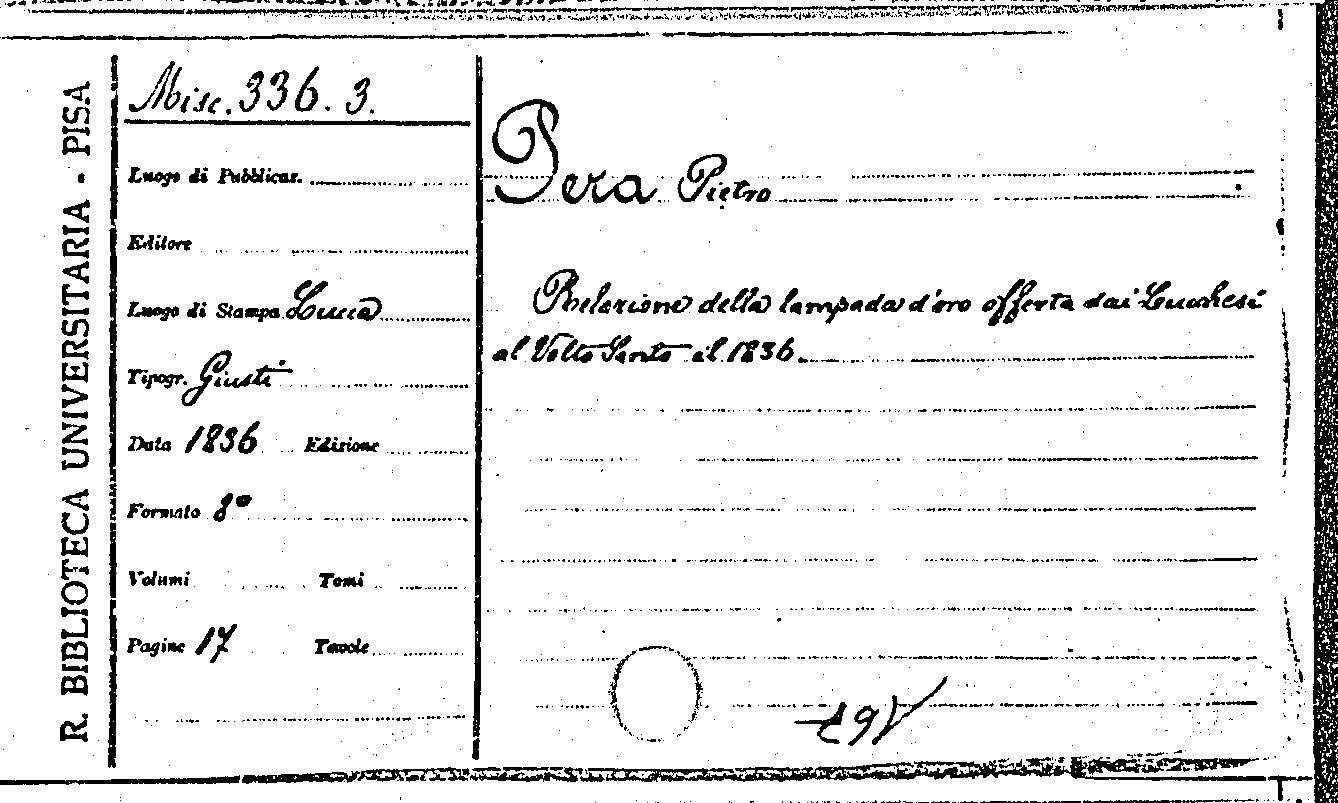 R. BIBLIOTECA UNIVERSITARIA - PISA
Misc. 336. 3.
Luogo di Pubblicaz.
Editore
Luogo di Stampa Lucca
Tipogr. Giusti
Data 1836 Edizione
Formato 8º
Volumi Tomi
Pagine 17 Tavole
Pera Pietro
Relazione della lampada d'oro offerta dai Lucchesi
al Volto Santo il 1836.